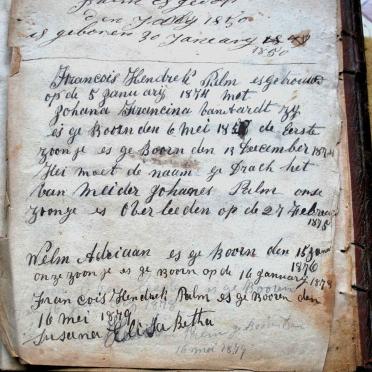 den 1850
is geboren 30 January
1850
Francois Hendrek Palm es getrouwd
op de 5 januarij 1874 met
Johana Francina van Aardt zy
es ge Boorn den 6 Mei 185 de Eerste
zoonje es ge Boorn den 13 December 1874
Hei moet de naam ge Drach het
van Meider Johanes Palm onse
zoonje es Over leeden op de 27 Febrear
1875
Welm Adriaan es ge Boorn den 15
1876
onze zoon je es ge Booren op de 16 january 1878
Francois Hendrek Palm es ge Booren den
16 mei 1879
Susana Elisa Betha
ge Booren
16 mei 1879